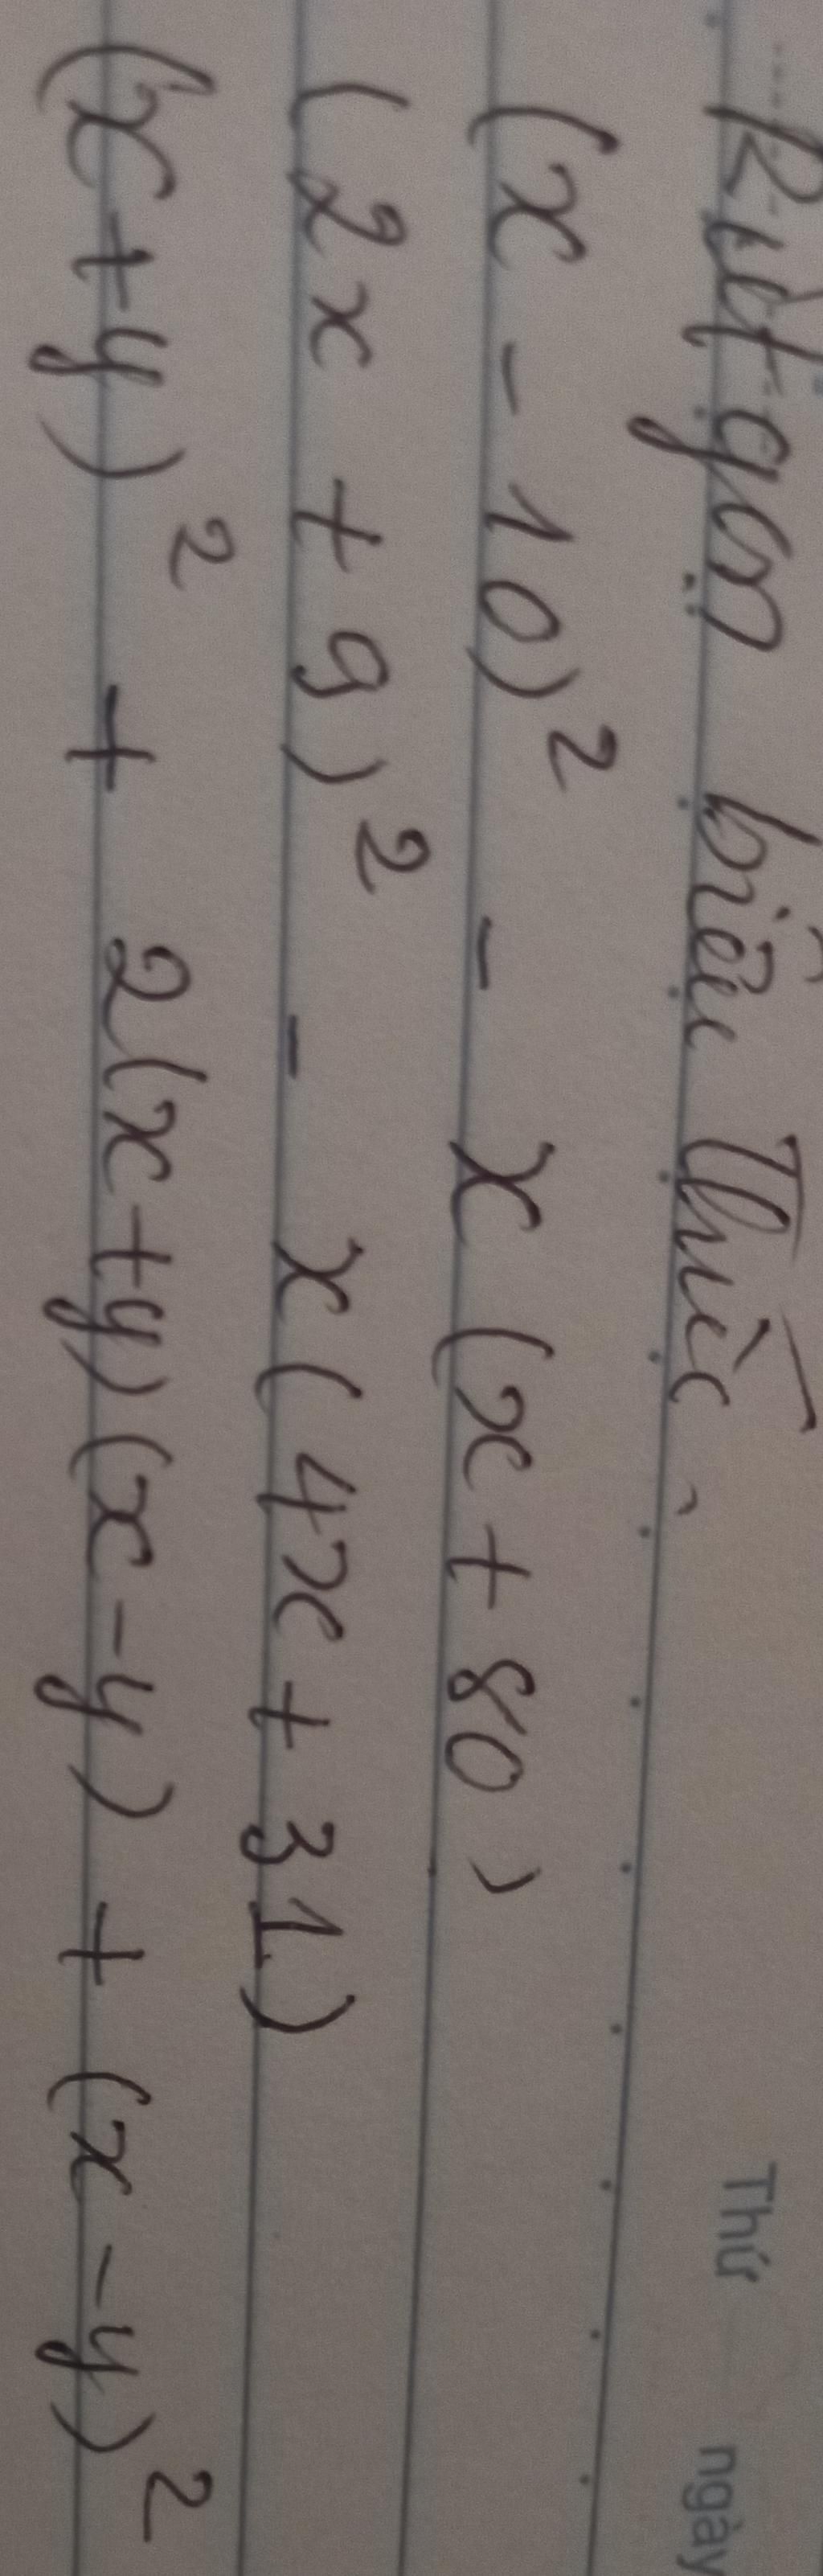 Thứ ngày
Rút gọn biểu thức
(x - 10)² - x (x + 80)
(2x + 9)² - x (4x + 31)
(x + y)² + 2(x + y) (x - y) + (x - y)²